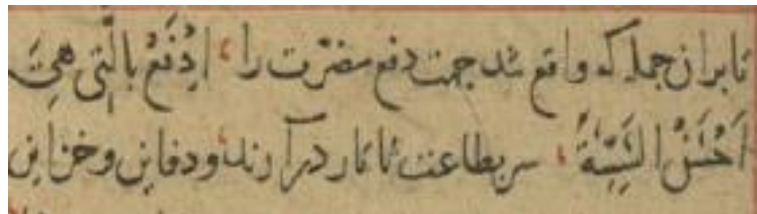 تا بران جمله که واقع شد جهت دفع مضرّت را ادْفَعْ بِالَّتی هِیَ
اَحْسَنُ السَّیِّئَةَ سر بطاعت تاتار درآرند و دفاین و خزاین